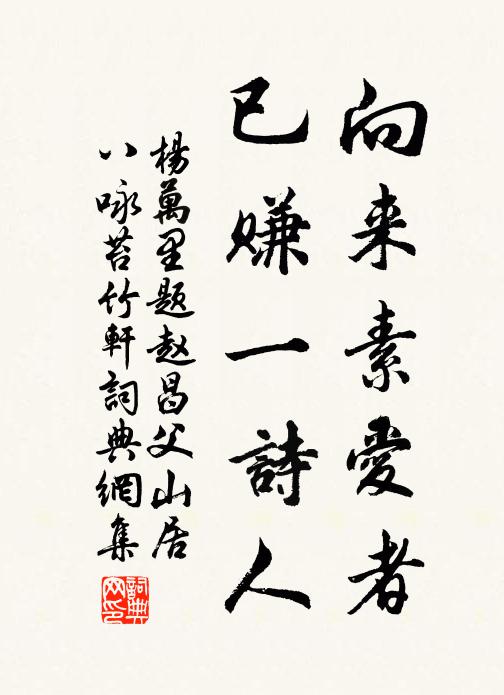 向来素愛者
已賺一詩人
楊萬里题赵昌父山居
八咏苔竹軒詞典網集
詞典网印